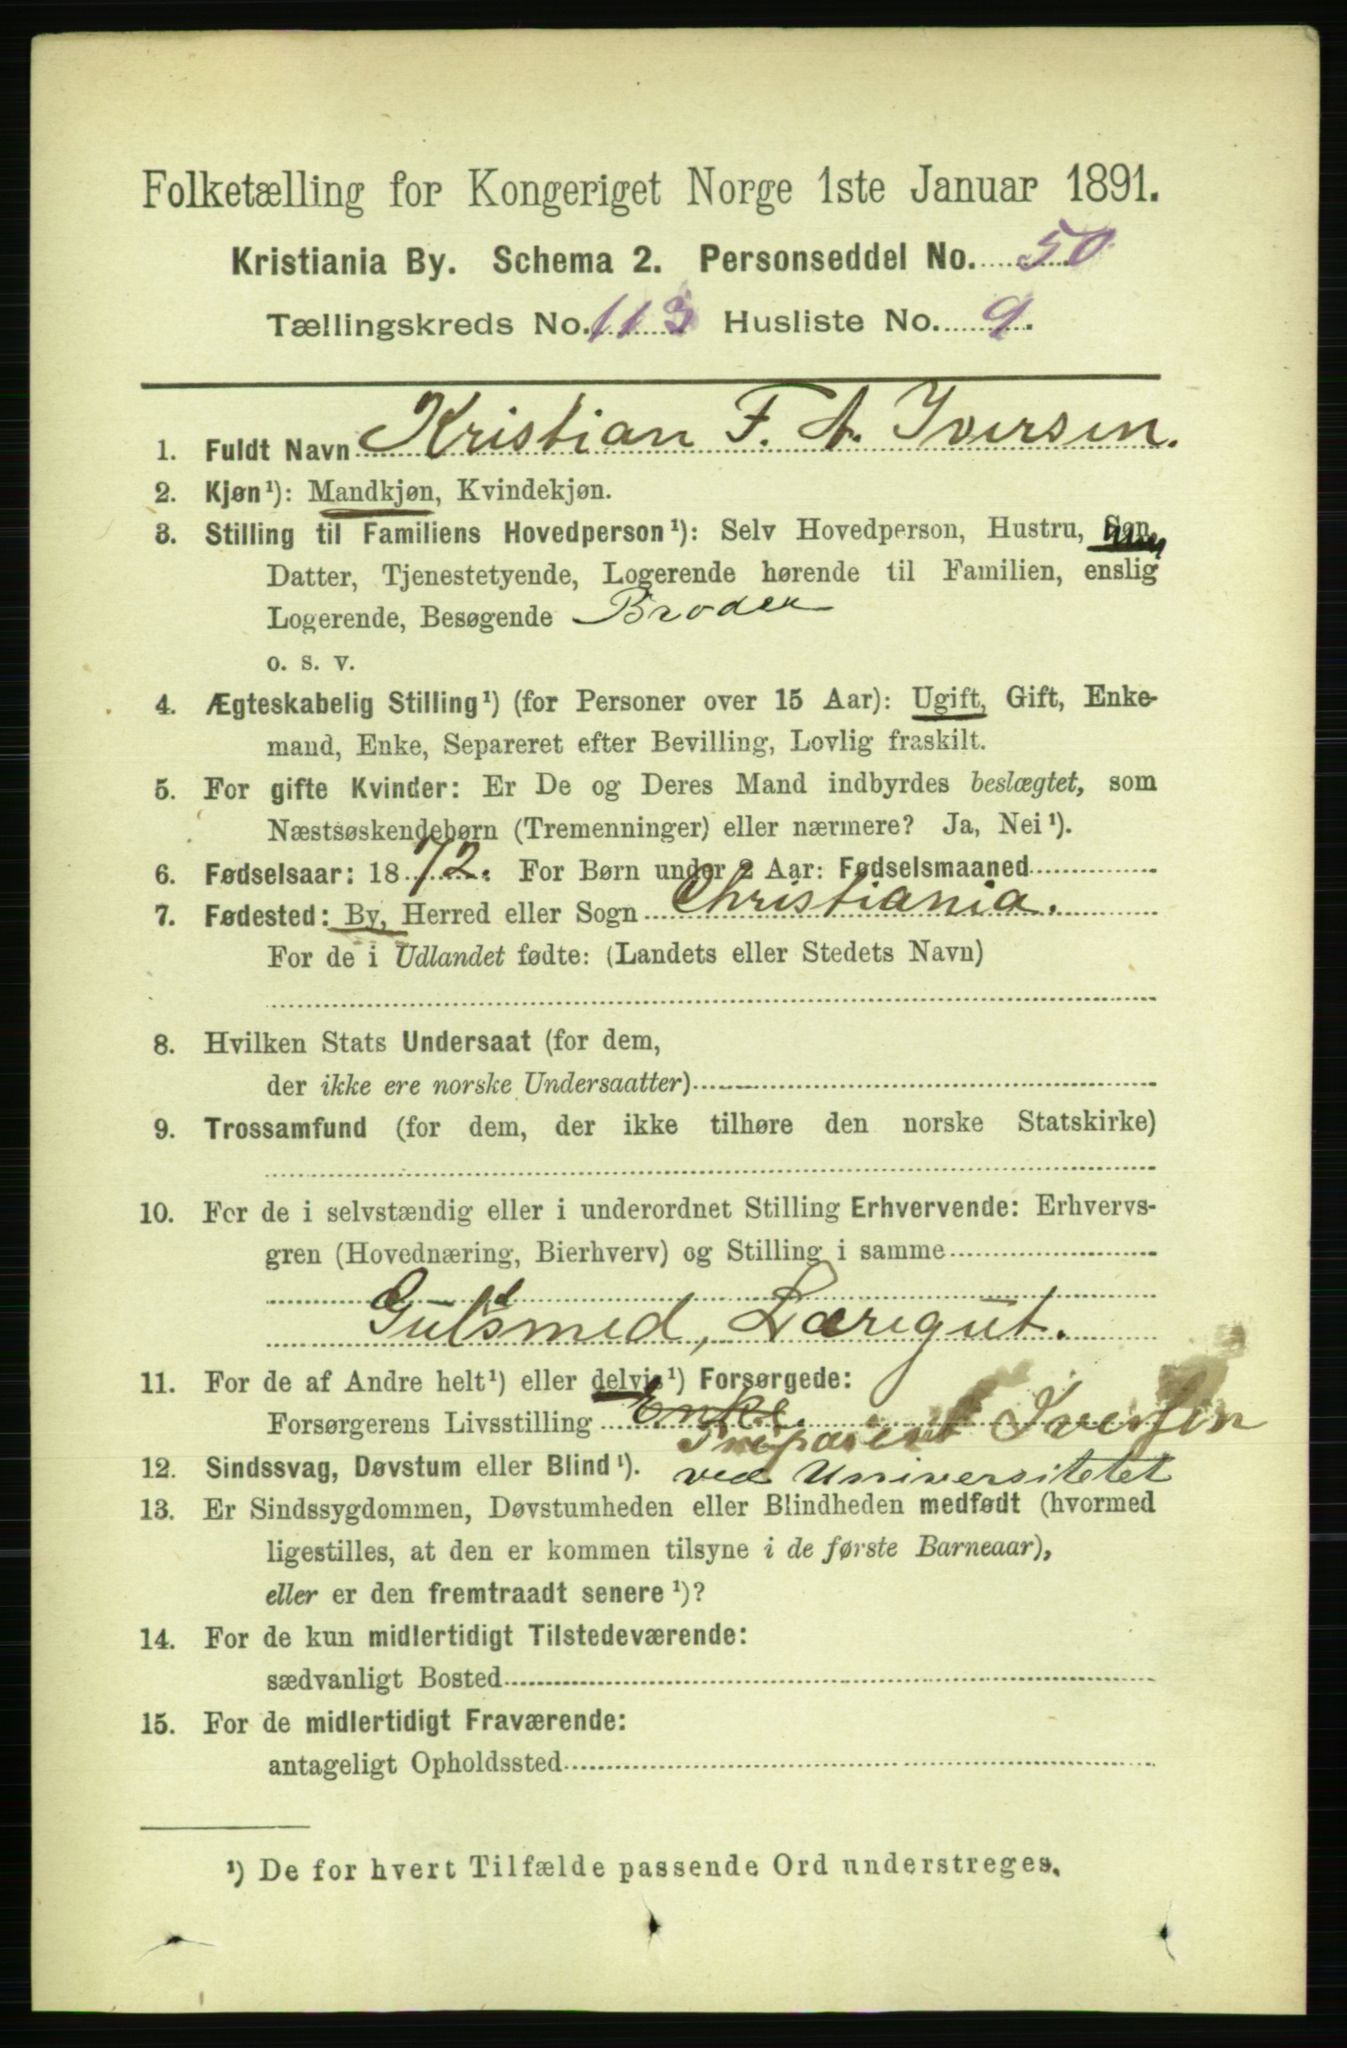 Folketælling for Kongeriget Norge 1ste Januar 1891.
Kristiania By. Schema 2. Personseddel No. 50
Tællingskreds No. 113 Husliste No. 9.
1. Fuldt Navn Kristian F. A. Iversen.
2. Kjøn¹): Mandkjøn, Kvindekjøn.
3. Stilling til Familiens Hovedperson¹): Selv Hovedperson, Hustru, Søn,
Datter, Tjenestetyende, Logerende hørende til Familien, enslig
Logerende, Besøgende Broder
o. s. v.
4. Ægteskabelig Stilling¹) (for Personer over 15 Aar): Ugift, Gift, Enke-
mand, Enke, Separeret efter Bevilling, Lovlig fraskilt.
5. For gifte Kvinder: Er De og Deres Mand indbyrdes beslægtet, som
Næstsøskendebørn (Tremenninger) eller nærmere? Ja, Nei¹).
6. Fødselsaar: 1872. For Børn under 2 Aar: Fødselsmaaned
7. Fødested: By, Herred eller Sogn Christiania.
For de i Udlandet fødte: (Landets eller Stedets Navn)
8. Hvilken Stats Undersaat (for dem,
der ikke ere norske Undersaatter)
9. Trossamfund (for dem, der ikke tilhøre den norske Statskirke)
10. For de i selvstændig eller i underordnet Stilling Erhvervende: Erhvervs-
gren (Hovednæring, Bierhverv) og Stilling i samme
Guldsmed, Læregut.
11. For de af Andre helt¹) eller delvis¹) Forsørgede:
Forsørgerens Livsstilling Enke. Iversen
12. Sindssvag, Døvstum eller Blind¹). ved Universitetet
13. Er Sindssygdommen, Døvstumheden eller Blindheden medfødt (hvormed
ligestilles, at den er kommen tilsyne i de første Barneaar),
eller er den fremtraadt senere¹)?
14. For de kun midlertidigt Tilstedeværende:
sædvanligt Bosted
15. For de midlertidigt Fraværende:
antageligt Opholdssted
¹) De for hvert Tilfælde passende Ord understreges.